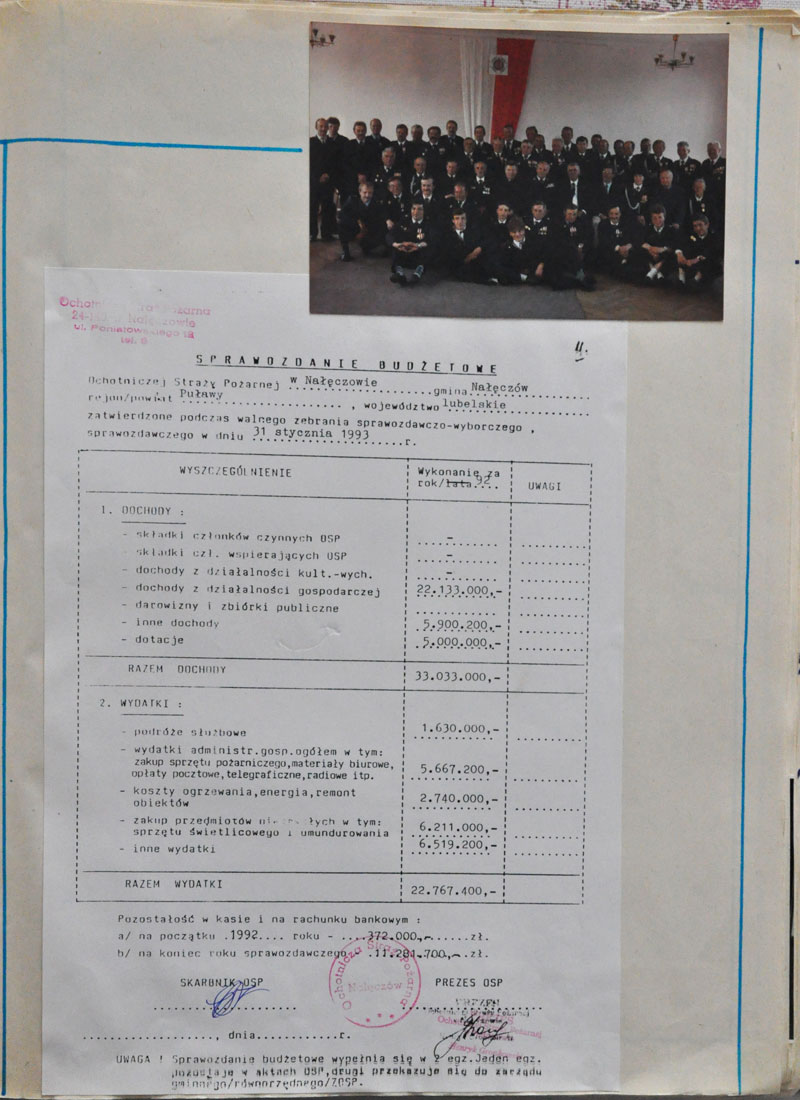 Ochot
24-1
ul. Poniatowskiego 12
tel. 9
4.
SPRAWOZDANIE BUDŻETOWE
Ochotniczej Straży Pożarnej w Nałęczowie gmina Nałęczów
rejon/powiat Puławy, województwo lubelskie
zatwierdzone podczas walnego zebrania sprawozdawczo-wyborczego,
sprawozdawczego w dniu 31 stycznia 1993 r.
WYSZCZEGÓLNIENIE
Wykonanie za
rok/lata 92
UWAGI
1. DOCHODY :
- składki członków czynnych OSP -
- składki czł. wspierających OSP -
- dochody z działalności kult.-wych. -
- dochody z działalności gospodarczej 22.133.000,-
- darowizny i zbiórki publiczne
- inne dochody 5.900.200,-
- dotacje 5.000.000,-
RAZEM DOCHODY 33.033.000,-
2. WYDATKI :
- podróże służbowe 1.630.000,-
- wydatki administr.gosp.ogółem w tym:
zakup sprzętu pożarniczego,materiały biurowe,
opłaty pocztowe,telegraficzne,radiowe itp. 5.667.200,-
- koszty ogrzewania,energia,remont
obiektów 2.740.000,-
- zakup przedmiotów w tym:
sprzętu świetlicowego i umundurowania 6.211.000,-
- inne wydatki 6.519.200,-
RAZEM WYDATKI 22.767.400,-
Pozostałość w kasie i na rachunku bankowym :
a/ na początku .1992.... roku - ....372.000,-......zł.
b/ na koniec roku sprawozdawczego .11.281.700,-.zł.
SKARBNIK OSP
PREZES OSP
Ochotnicza Straż Pożarna
Nałęczów
PREZES
...................., dnia............r.
UWAGA ! Sprawozdanie budżetowe wypełnia się w 2 egz.Jeden egz.
pozostaje w aktach OSP,drugi przekazuje się do zarządu
gminnego/równorzędnego/ZOSP.